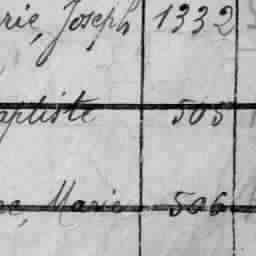 rie, Joseph 1332
aptiste 505
ne, Marie 506